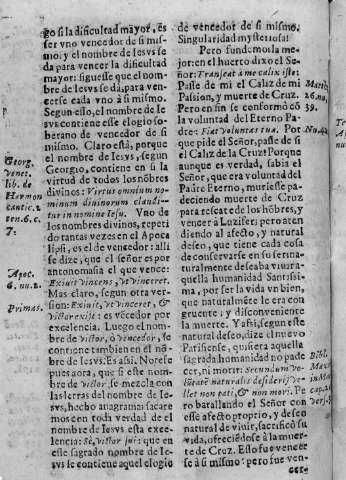 go si la dificultad mayor, es
ser vno vencedor de si mis-
mo: y el nombre de Iesvs se
da para vencer la dificultad
mayor: siguesse que el nom-
bre de Iesvs se dá, para ven-
cerse cada vno à si mismo.
Segun esso, el nombre de Ie-
svs contiene este elogio so-
berano de vencedor de si
mismo. Claro està, porque
el nombre de Iesvs, segun
Georgio, contiene en si la
virtud de todos los nõbres
divinos: Virtus omnium no-
minum divinorum claudi-
tur in nomine Iesu. Vno de
los nombres divinos, repeti
do tantas vezes en el Apoca
lipsi, es el de vencedor: alli
se dize, que el señor es por
antonomasia el que vence:
Exivit vincens, vt vinceret.
Mas claro, segun otra ver-
sion: Exivit, vt vinceret, &
victor exijt: es vẽcedor por
excelencia. Luego el nom-
bre de victor, ò vencedor, se
contiene tambien en el nõ-
bre de Iesvs. Es assi. Notese
pues aora, que si este nom-
bre de victor, se mezcla con
las letras del nombre de Ie-
svs, hecho anagramas sacare
mos con toda verdad del
nombre de Iesvs esta exce-
lencia: Sè, victor sui: que en
este sagrado nombre de Ie-
svs se contiene aquel elogio
Georg.
venet.
lib. de
Harmon
cantic. 1
ton. 6. c.
7.
Apoc.
6. nu. 2.
Primas.
de vencedor de si mismo.
Singularidad mysteriosa!
Pero fundemos la me-
jor: en el huerto dixo el Se-
ñor: Transeat à me calix iste:
Passe de mi el Caliz de mi
Passion, y muerte de Cruz.
Pero en fin se conformò cõ
la voluntad del Eterno Pa-
dre: Fiat voluntas tua. Por
que pide el Señor, passe de si
el Caliz de la Cruz? Porque
aunque es verdad, sabia el
Señor, que era voluntad del
Padre Eterno, muriesse pa-
deciendo muerte de Cruz
para rescate de los hõbres, y
vencer à Luzifer: pero aten
diendo al afecto, y natural
deseo, que tiene cada cosa
de conservarse en su ser: na-
turalmente deseaba viuir a-
quella humanidad Santissi-
ma, por ser la vida vn bien,
que naturalmẽte le era con
gruente; y disconveniente
la muerte. Y assi, segun este
natural deseo, dize el nuevo
Patisiense, quisiera aquella
sagrada humanidad no pade
cer, ni morir: Secundum vo-
lũtatẽ naturalis desiderij vo-
llet non pati, & non mori. Pe
ro batallando el Señor con
esse afecto proprio, y deseo
natural de vivir, sacrificò su
vida, ofreciẽdose à la muer-
te de Cruz. Esso fue vencer
se à si mismo: pero fue ven-
cer-
Matth.
26. nu.
39.
Nu. 42.
Bibl.